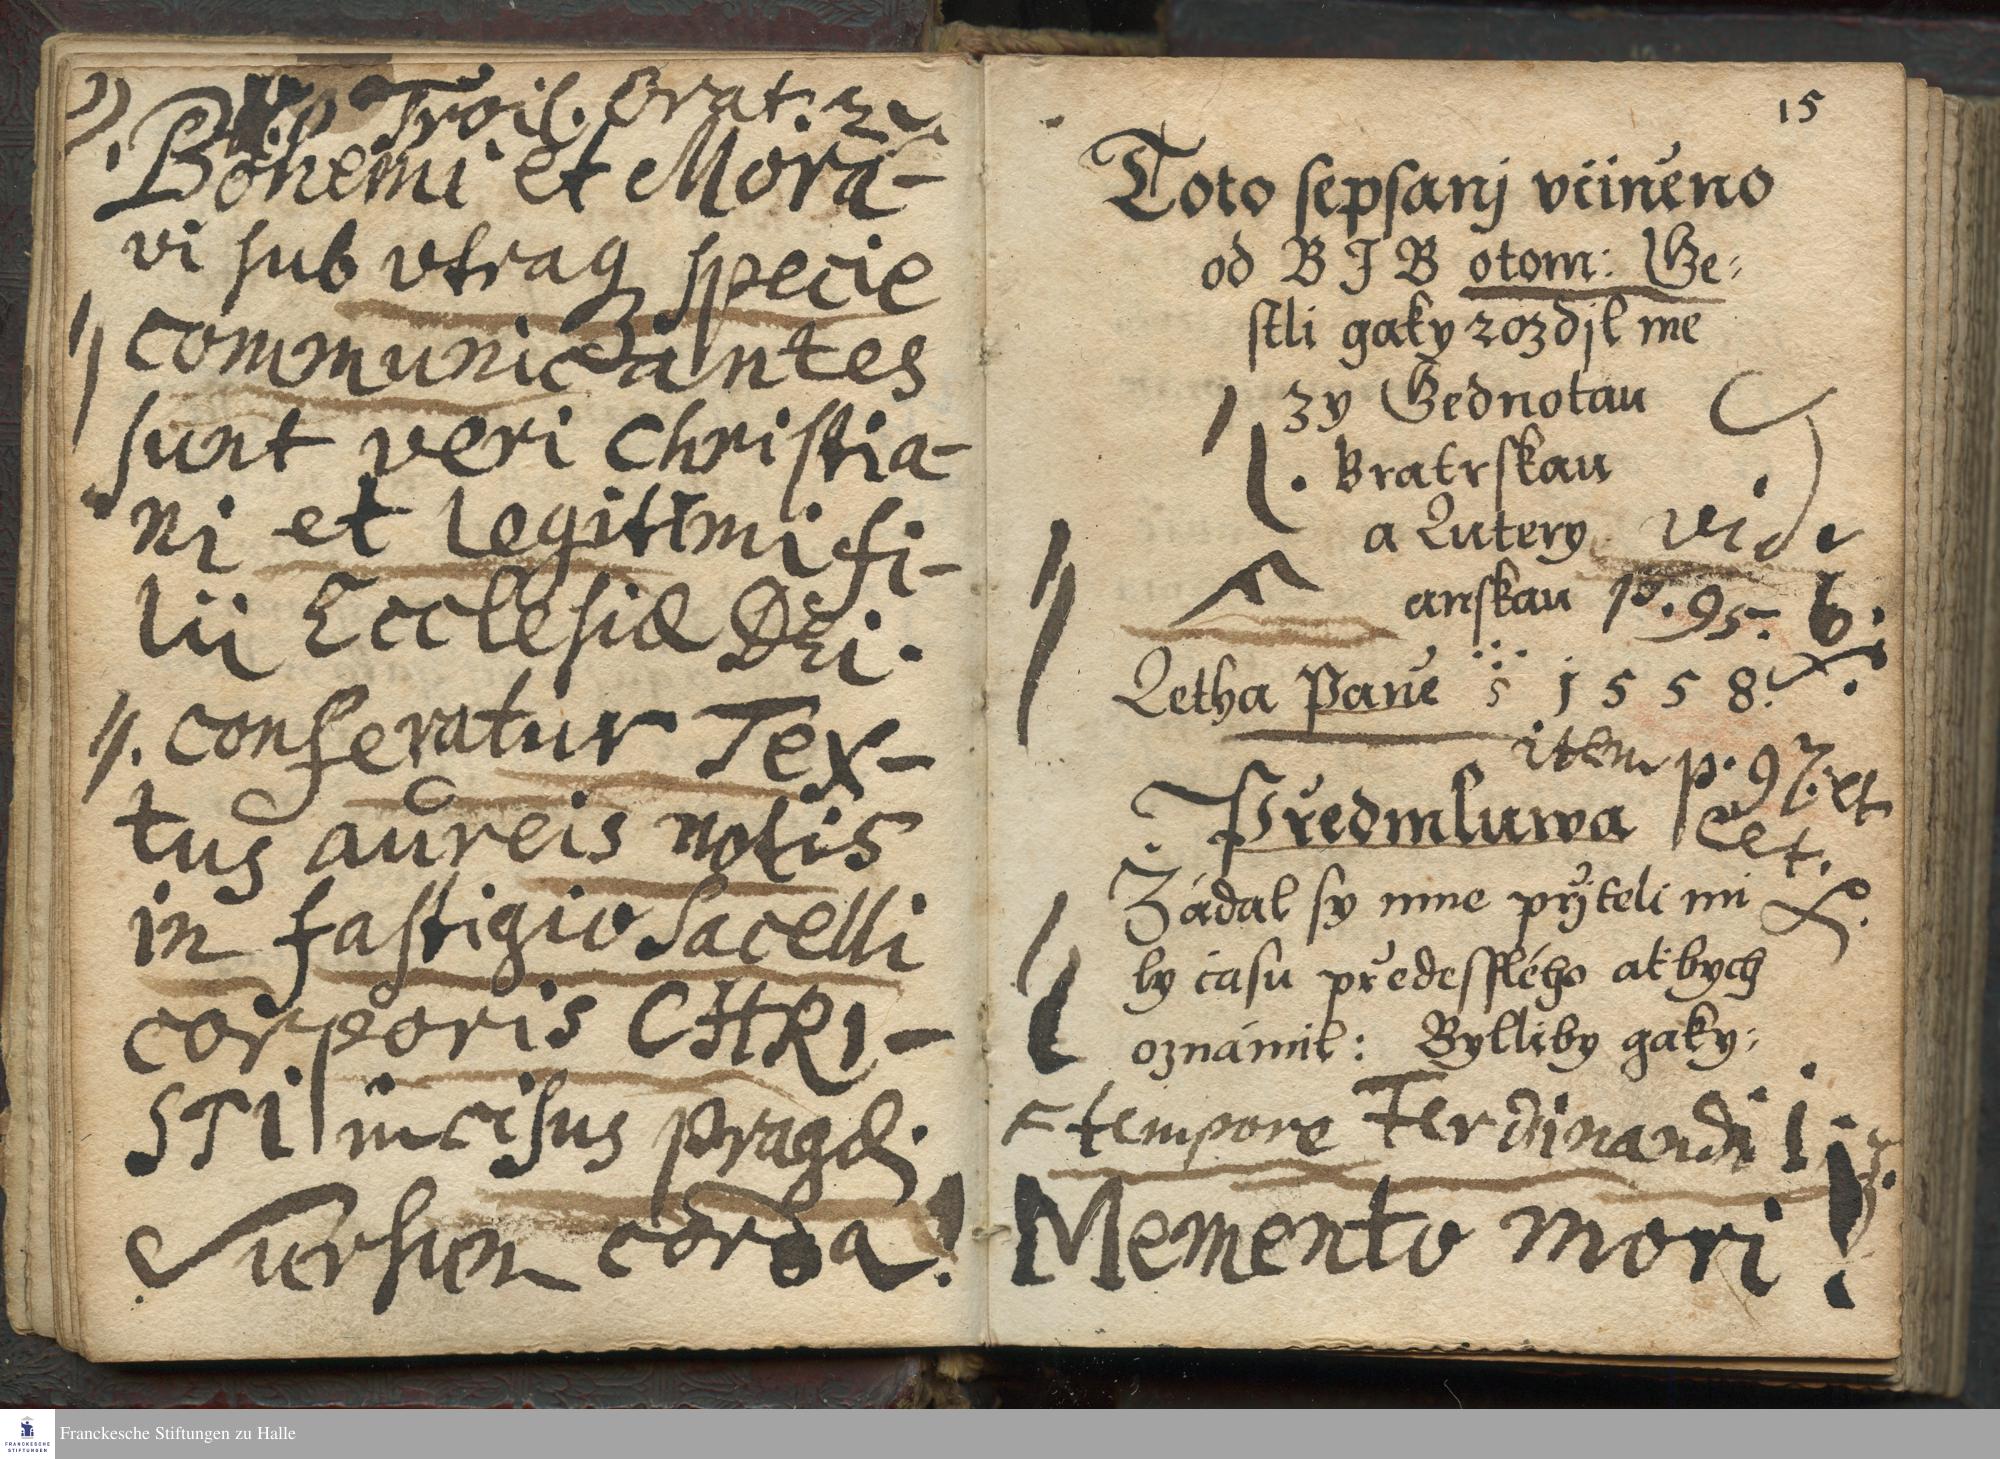 Troil. Orat. 2
Bohemi et Mora-
vi sub vtraq₃ specie
communicantes
sunt veri Christia-
ni et legitimi fi-
lii Ecclesiæ DEi.
conferatur Tex-
tus aureis notis
in fastigio Sacelli
corporis CHRI-
STI incisus Pragæ.
Sursum corda!
15
Toto sepsanj včiněno
od B J B otom: Ge-
stli gaky rozdjl me
zy Gednotau
Bratrskau
a Lutery vide
anskau p. 95. b.
Letha Paně 1558.
item p. 97. et
Předmluwa cet.
Žádal sy mne přjteli mi
ly času předesslého atbych
oznámil: Bylliby gaky:
tempore Ferdinandi I.
Memento mori!
Franckesche Stiftungen zu Halle
FRANCKESCHE
STIFTUNGEN